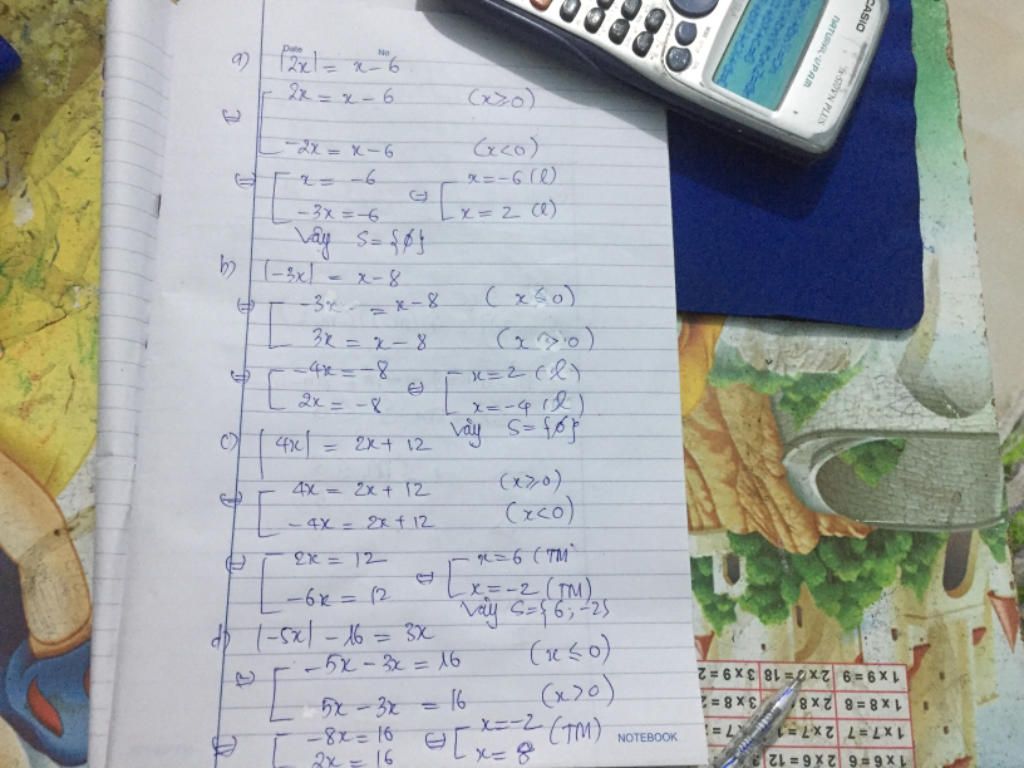 Date No
a) |2x| = x - 6
⇔ [ 2x = x - 6 (x ≥ 0)
-2x = x - 6 (x < 0)
⇔ [ x = -6 ⇔ [ x = -6 (l)
-3x = -6 x = 2 (l)
Vậy S = {∅}
b) |-3x| = x - 8
⇔ [ -3x = x - 8 (x ≤ 0)
3x = x - 8 (x > 0)
⇔ [ -4x = -8 ⇔ [ x = 2 (l)
2x = -8 x = -4 (l)
Vậy S = {∅}
c) |4x| = 2x + 12
⇔ [ 4x = 2x + 12 (x ≥ 0)
-4x = 2x + 12 (x < 0)
⇔ [ 2x = 12 ⇔ [ x = 6 (TM
-6x = 12 x = -2 (TM)
Vậy S = {6; -2}
d) |-5x| - 16 = 3x
⇔ [ -5x - 3x = 16 (x ≤ 0)
5x - 3x = 16 (x > 0)
⇔ [ -8x = 16 ⇔ [ x = -2 (TM)
2x = 16 x = 8
NOTEBOOK
CASIO
NATURAL-V.P.A.M.
1 x 9 = 9 2 x 9 = 18 3 x 9 = 2
1 x 8 = 8 2 x 8 3 x 8 = 2
1 x 7 = 7 2 x 7 =
1 x 6 = 6 2 x 6 = 12